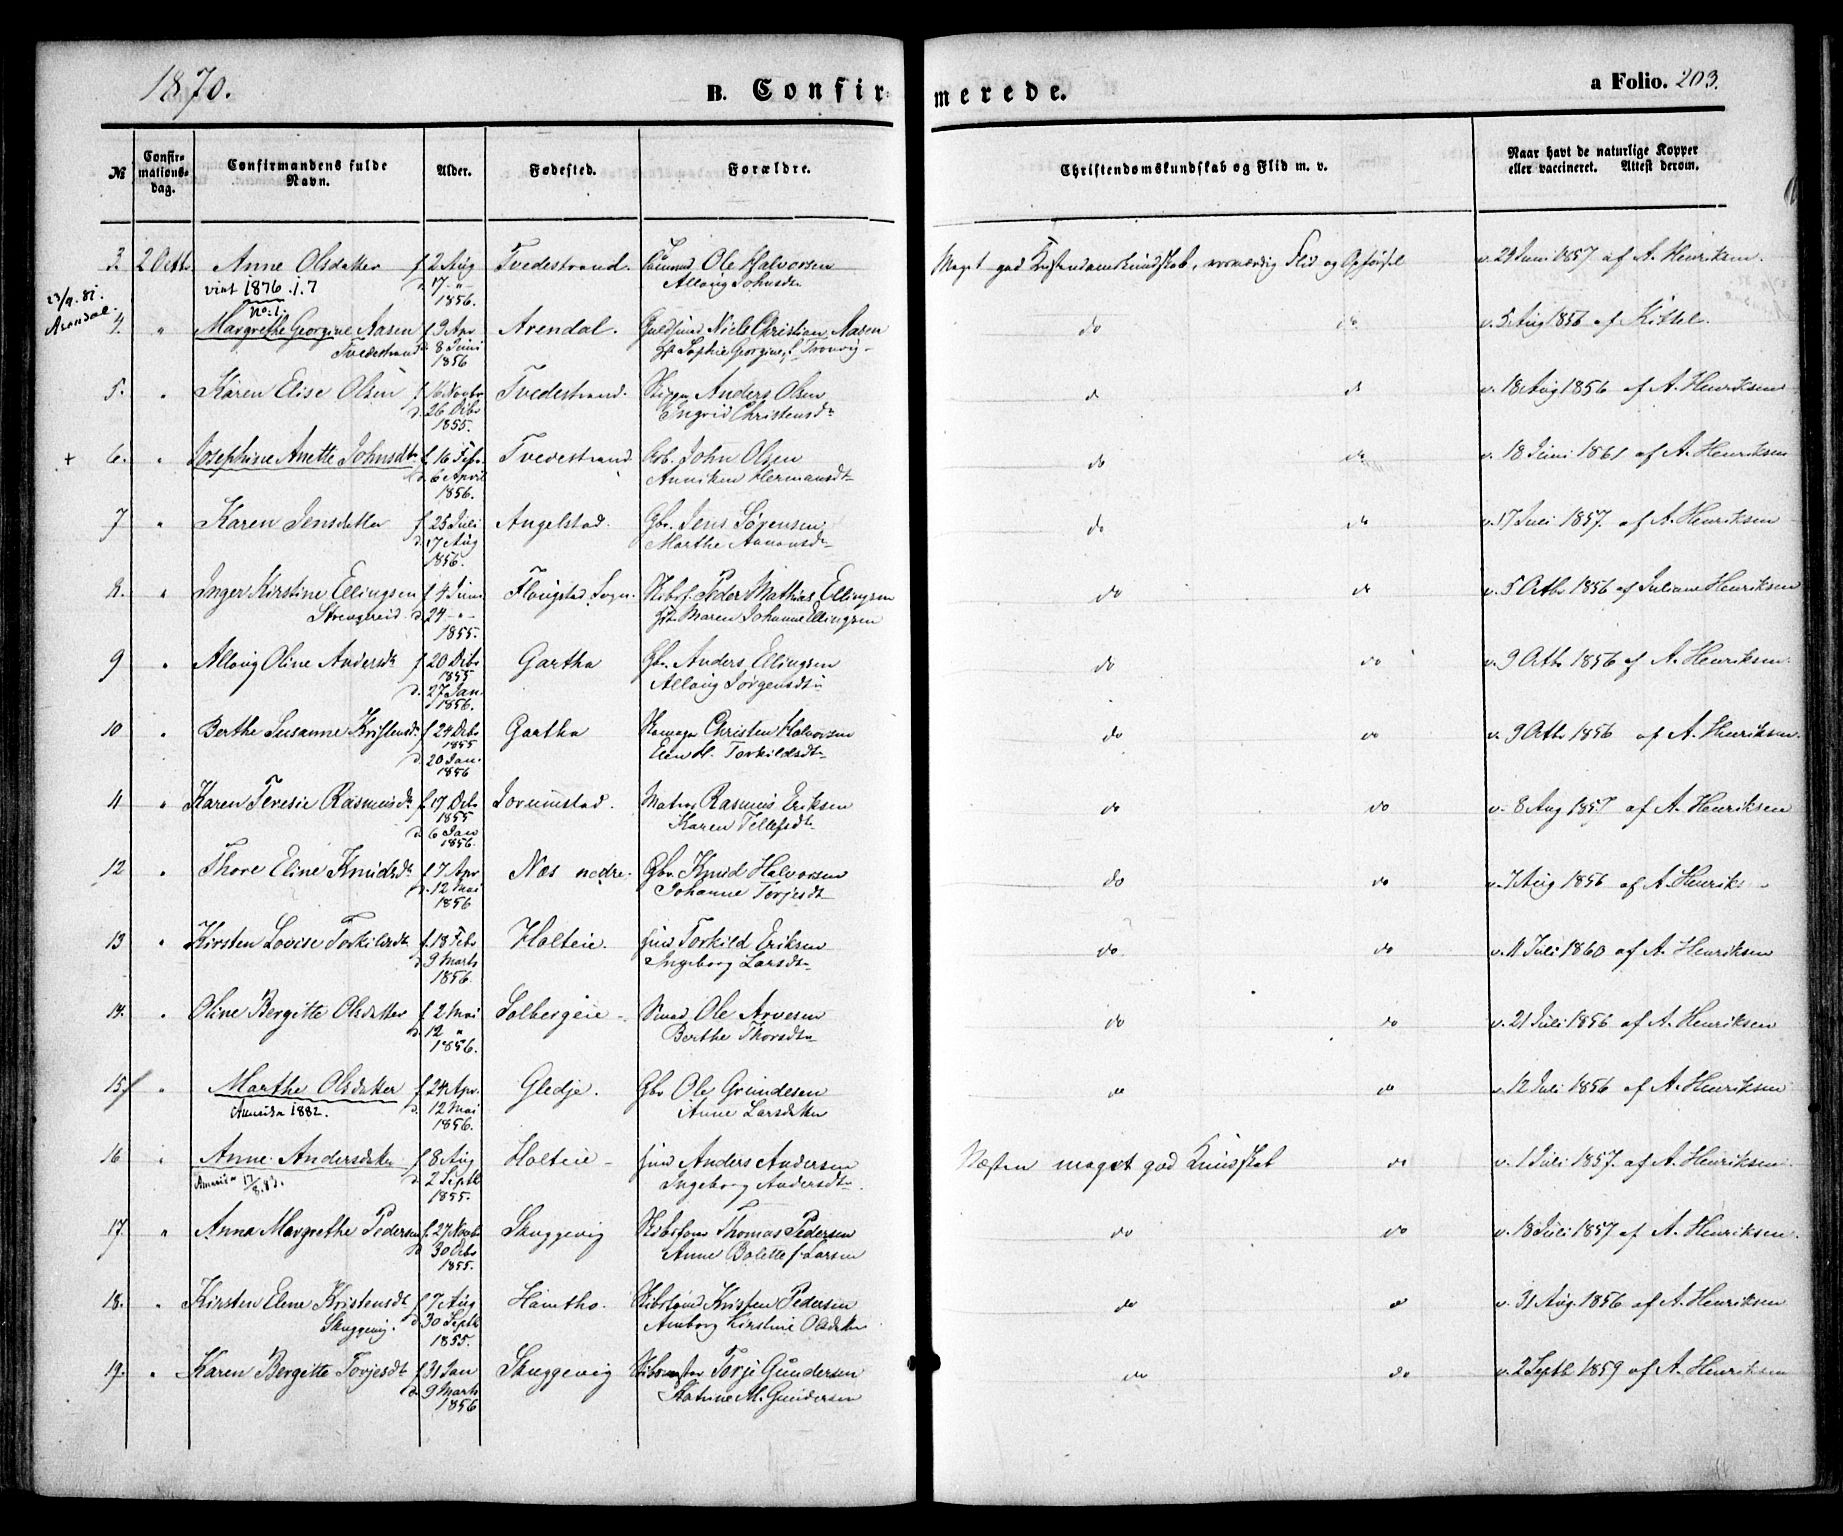 1870.
B. Confirmerede.
a Folio. 203.
№
Confirmationsdag.
Confirmandens fulde Navn.
Alder.
Fødested.
Forældre.
Christendomskundskab og Flid m. v.
Naar havt de naturlige Kopper eller vaccineret. Attest derom.
3. 2 Octb. Anne Olsdatter f. 2 Aug Tvedestrand. Ole Halvorsen Meget god Kristendomskundskab, Flid og Opførsel v. 29 Juni 1857 af A. Henriksen.
viet 1876. 1. 7 d. 17 -"- Alloug Johnsdt
1856.
23/9. 81. Arendal.
No: 1.
4. " Margrethe Georgine Aasen f. 9 Apr Arendal. Niels Christian Aasen do do v. 5 Aug 1856 af Kittel.
Tvedestrand d. 8 Juni Sophie Georgine f. Tronvig
1856
5. " Karen Elise Olsen f. 16 Novbr Tvedestrand. Anders Olsen do do v. 18 Aug 1856 af A. Henriksen
d. 26 Dcbr Ingrid Christensdt
1855.
+ 6. " Josephine Anette Johnsdt f. 16 Febr Tvedestrand Arb. John Olsen do do v. 18 Juni 1861 af A. Henriksen
d. 6 April Anniken Hermansdt
1856.
7 " Karen Jensdatter f. 25 Juli Angelstad. Gbr. Jens Sørensen do do v. 17 Juli 1857. af A. Henriksen
d. 17 Aug Marthe
1856.
8. " Inger Kirstine Ellingsen f. 4 Juni Sogn. Skibsf. Peder Mathias Ellingsen do do v. 5 Octb 1856 af Juliane Henriksen
Strengereid d. 24 -"- Maren Johanne Ellingsen
1855.
9 " Alloug Oline Andersdt f. 20 Dcbr Gartha Gbr. Anders Ellingsen do do v. 9 Octb 1856 af A. Henriksen.
1855
d. 27 Jan. Alloug Jørgensdt
1856.
10 " Berthe Susanne Kristensdt f. 24 Dcbr Gartha Christen Halvorsen do do v. 9 Octb 1856 af A. Henriksen.
1855
d. 20 Jan. Torkildsdt
1856
11 " Karen Teresie Rasmusdt f. 17 Dcbr Jorunstad. Matros Rasmus Eriksen do do v. 8 Aug 1857 af A. Henriksen
1855
d. 6 Jan Karen Tellefsdt
1856.
12 " Thore Eline Knudsdt f. 7 Apr Næs nedre. Gbr. Knud Halvorsen do do v. 7 Aug 1856 af A. Henriks-
d. 12 Mai Johanne Torjesdt
1856
13 " Kirsten Lovise Torkildsdt f. 18 Febr Holteie. Torkild Eriksen do do v. 11 Juli 1860 af A. Henriksen
d. 9 Marts Ingeborg Larsdt
1856.
14. " Oline Bergitte Olsdatter f. 2 Mai Solbergeie Ole Arvesen do do v. 21 Juli 1856 af A. Henriksen
d. 12 " Berthe Thorsdt
1856.
15 " Marthe Olsdatter f. 24 Apr. Gledje. Gbr Ole Gundesen do do v. 12 Juli 1856 af A. Henriksen
Amerika 1882. d. 12 Mai Anne Larsdatter
1856.
16 " Anne Andersdatter f. 8 Aug Holteie Anders Andersen Næsten meget god Kundskab do v. 1 Juli 1857. af A. Henriksen.
Amerika 17/8. 83. d. 2 Septb Ingeborg Andersdt
1855.
17. " Anna Margrethe Pedersen f. 27 Novb Skuggevig Thomas Pedersen do do v. 18 Juli 1857 af A. Henriksen.
d. 30 Dcbr Anne Bolette f. Larsen
1855.
18. " Kirsten Elene Kristensdt f. 7 Aug Hantho. Kristen Pedersen do do v. 31 Aug. 1856 af A. Henriksen
Skuggevig. d. 30 Septb Amborg Kirstine Olsdatter
1855.
19. " Karen Bergitte Torjesdt f. 31 Jan Skuggevig Torje Gundersen do do v. 2 Septb 1859 af A. Henriksen
d. 9 Marts M. Gundersen
1856